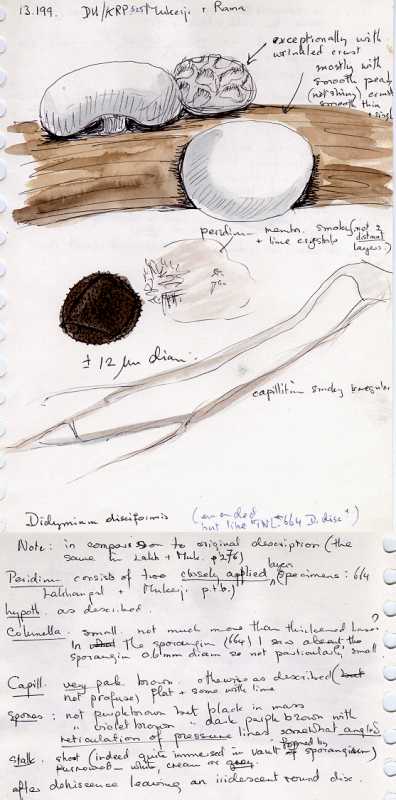 13.199. DU/KRP 525 Mukerji. + Rama
exceptionally with
wrinkled crust
mostly with
smooth pearl
(not shiny) crust
smooth thin
peridium membr. smoky (not 2
+ lime crystals distinct
layers?)
± 12 µm diam.
capillitium smoky irregular
Didymium disciformis
but like "INL" 664 D. disc")
Note: in comparison to original description (the
same in Lakh + Muk. p 276)
Peridium consists of two closely applied layers (Specimens: 664
Lakhanpal + Mukerji p.t.b.)
hypoth. as described.
Columella. small. not much more than thickened base?
In the sporangia (664) I saw about the
sporangia 0.61 mm diam so not particular small
Capill. very pale brown. otherwise as described (but
not profuse) flat + some with lime
spores: not purple brown but black in mass
" violet brown " dark purple brown with
reticulation of pressure lines somewhat angled
Stalk short (indeed quite immersed in vault formed by sporangium)
furrowed - white, cream or grey.
after dehiscence leaving an iridescent round disc.